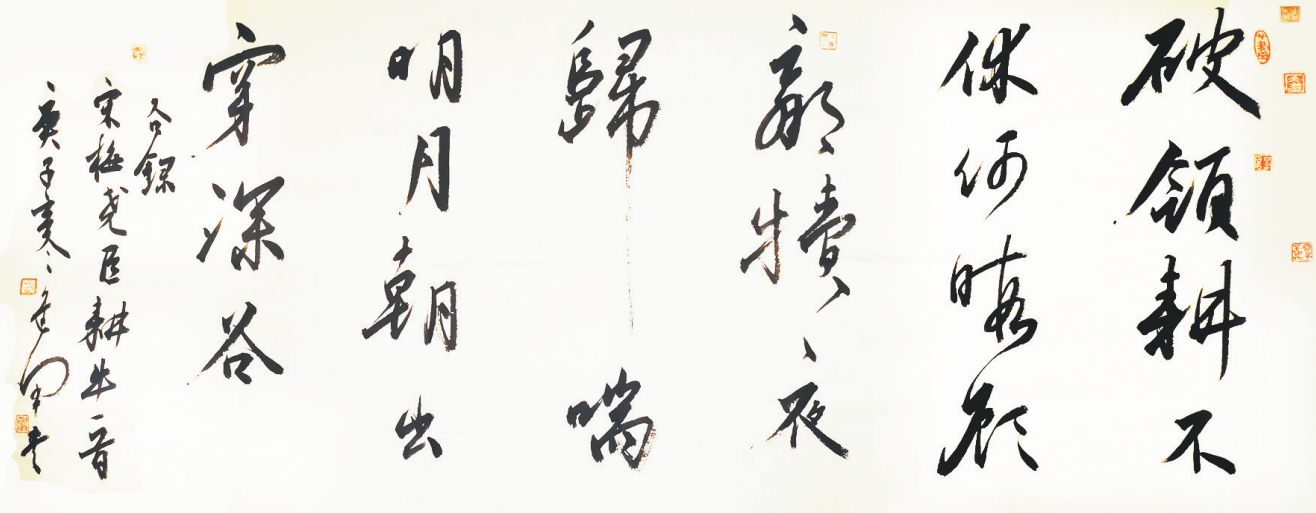 破領耕不
休何暇顧
羸犢夜
歸喘
明月朝出
穿深谷
右錄
宋梅堯臣耕牛一首
庚子寒冬